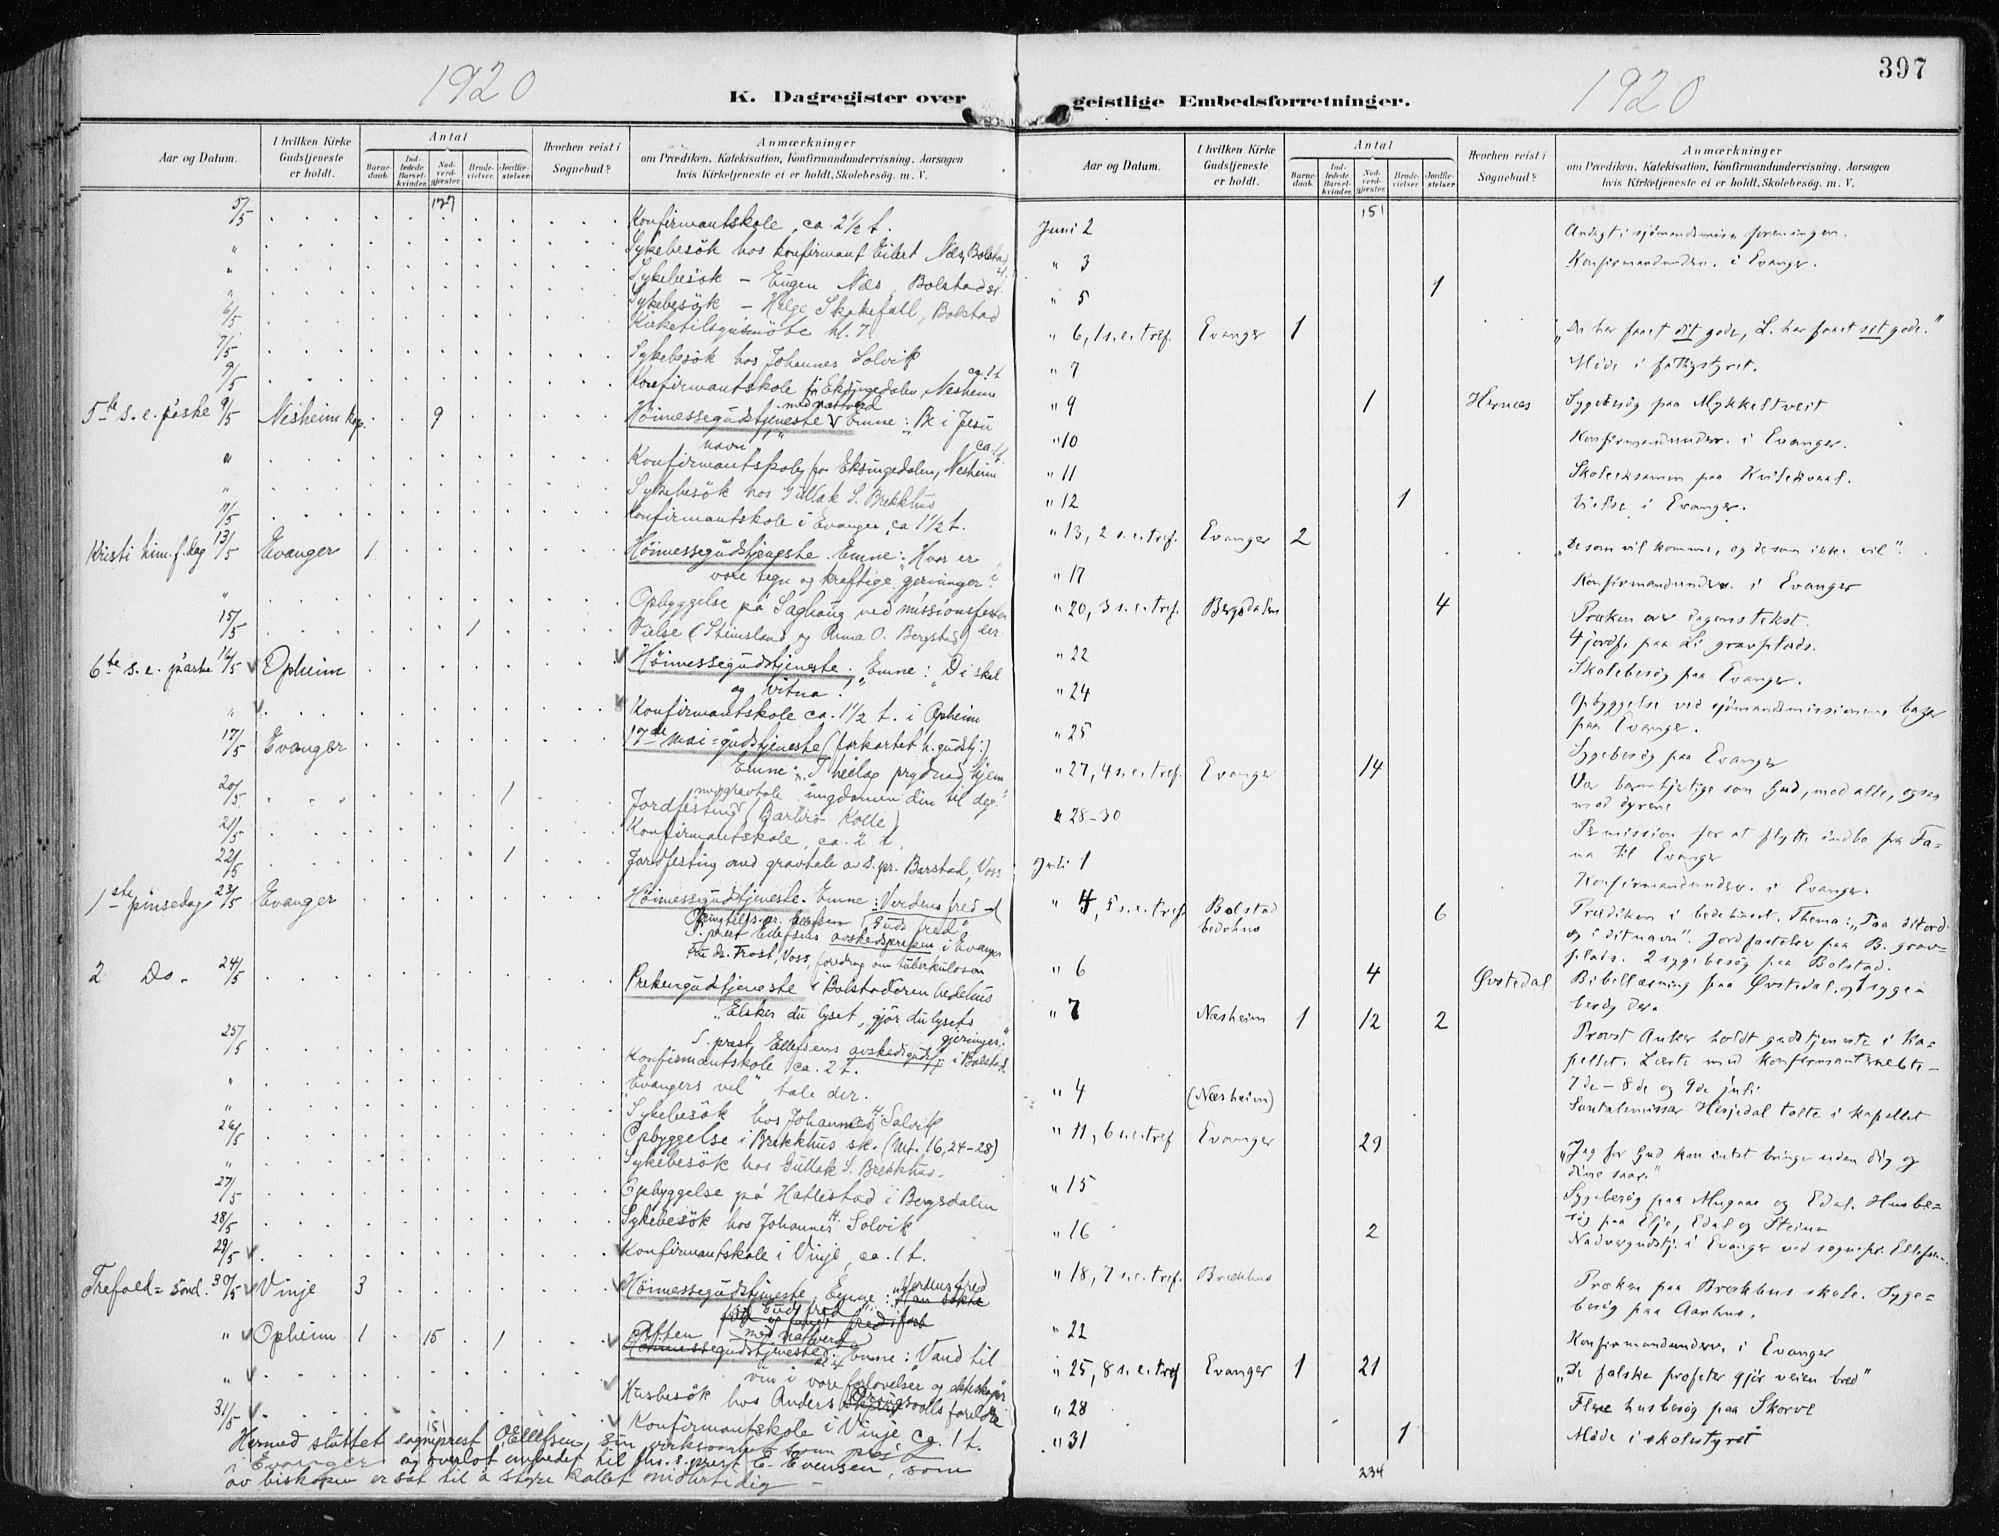 1920
K. Dagregister over
Aar og Datum.
I hvilken Kirke Gudstjeneste er holdt.
Antal
Barnedaab.
Indledede Barselkvinder.
Nadverdgjæster.
Brudevielser.
Jordfæstelser.
Hvorhen reist i Sognebud?
Anmærkninger
om Prædiken, Katekisation, Konfirmandundervisning, Aarsagen
hvis Kirketjeneste ei er holdt, Skolebesøg. m. V.
127
5/5 Konfirmantskole, ca 2½ t.
" Sykebesök hos konfirmant Eilert Næs, Bolstad
" Sykebesök — Eugen Næs, Bolstad
" Sykebesök — Helge Skakefall, Bolstad
6/5 Kirketilsynsmöte kl. 7
7/5 Sykebesök hos Johannes Solvik
9/5 Konfirmantskole for Eksingedalen, Nesheim ca. 1 t.
5te s. e. påske 9/5 Nesheim kap. 9 Höimessegudstjeneste med nattverd Emne: Be i Jesu
navn!"
" Konfirmantskole for Eksingedalen, Nesheim ca. 1 t.
" Sykebesök hos Gullak S. Brekkhus
11/5 Konfirmantskole i Evanger, ca 1½ t.
Kristi him.f.dag 13/5 Evanger 1 Höimessegudstjeneste. Emne: "Hvor er
vore tegn og kraftige gjerninger".
" Opbyggelse på Saghaug ved missionsfesten der
15/5 1 Vielse (Steinsland og Anna O. Bergstad)
6te s. e. påske 16/5 Opheim Höimessegudstjeneste. Emne: "De skal
og vitna!"
" Konfirmantskole ca. 1½ t. i Opheim
17/5 Evanger 17de mai-gudstjeneste (forkortet h. gudstj.)
Emne: "I heilag prydnad kjem
ungdomen din til deg"
20/5 1 Jordfesting m/gravtale (Barbro Kolle)
21/5 Konfirmantskole, ca. 2 t.
22/5 1 Jordfesting med gravtale av s. pr. Barstad, Voss
1ste pinsedag 23/5 Evanger Höimessegudstjeneste. Emne: Verdens fred –
Guds fred
S. prest Ellefsens avskedspreken i Evanger
Fru dr. Frost, Voss, foredrag om tuberkulosen
2 Do. 24/5 Prekengudstjeneste i Bolstadören bedehus
"Elsker du lyset, gjör du lysets
gjerninger".
S. prest Ellefsens avskedsgudstj. i Bolstad
25/5 Konfirmantskole ca. 2 t.
" "Evangers vel" tale der.
" Sykebesök hos Johannes H. Solvik
26/5 Opbyggelse i Brekkhus sk. (Mt. 16,24–28)
" Sykebesök hos Gullak S. Brekkhus.
27/5 Opbyggelse på Hatlestad i Bergsdalen
28/5 Sykebesök hos Johannes H. Solvik
29/5 Konfirmantskole i Vinje, ca. 1 t.
Trefold. sönd. 30/5 Vinje 3 Höimessegudstjeneste. Emne: "Verdens fred
og Guds fred"
" Opheim 1 15 1 Aften med nattverd
Emne: "Vand til
vin i vore forlovelser og ekteskaper
" Husbesök hos Anders foreldre
31/5 Konfirmantskole i Vinje ca. 1 t.
151
Hermed sluttet sogneprest O. Ellefsen sin virksomhet som prest
i Evanger og overlot embedet til s. prest E. Evensen, som
av biskopen er sat til å styre kallet midlertidig —
397
1920
geistlige Embedsforretninger.
Aar og Datum.
I hvilken Kirke Gudstjeneste er holdt.
Antal
Barnedaab.
Indledede Barselkvinder.
Nadverdgjæster.
Brudevielser.
Jordfæstelser.
Hvorhen reist i Sognebud?
Anmærkninger
om Prædiken, Katekisation, Konfirmandundervisning, Aarsagen
hvis Kirketjeneste ei er holdt, Skolebesøg. m. V.
151
Juni 2 Andagt i sjömandsmisn foreningen.
" 3 Konfirmandunderv. i Evanger.
" 5 1
" 6, 1 s. e. tref. Evanger 1 "Du har faaet dit gode, L. har faaet sit gode."
" 7 Möde i fattigstyret.
" 9 1 Hernes Sygebesög paa Mykkeltveit
" 10 Konfirmandunderv. i Evanger.
" 11 Skoleeksamen paa Kvitekvaal.
" 12 1 Vielse i Evanger.
" 13, 2 s. e. tref. Evanger 2 "De som vil komme, og de som ikke vil".
" 17 Konfirmandunderv. i Evanger
" 20, 3 s. e. tref. Bergsdalen 4 Præken over dagens tekst.
4 jordf. paa Li gravplads.
" 22 Skolebesög paa Evanger.
" 24 Opbyggelse ved sjömandsmissionens bazar
paa Evanger.
" 25 Sygebesög paa Evanger
" 27, 4 s. e. tref. Evanger 14 Vær barmhjertige som Gud, mod alle, ogsaa
mod dyrene
" 28–30 Permission for at flytte indbo fra Fana
til Evanger
Juli 1 Konfirmandunderv. i Evanger.
" 4, 5 s. e. tref. Bolstad bedehus 6 Prædiken i bedehuset. Thema: "Paa dit ord
og i dit navn". Jordfæstelse paa B. gravplads.
2 sygebesög paa Bolstad.
" 6 4 Øvstedal Bibellæsning paa Øvstedal, og sygebesög
der.
" 7 Næsheim 1 12 2 Provst Anker holdt gudstjeneste i Kapellet.
Læste med konfirmanterne
7de – 8de og 9de juli
" 4 (Næsheim) Santalmissær Hesjedal talte i kapellet
" 11, 6 s. e. tref Evanger 29 "Jeg for Gud kan intet bringe uden dig og
dine saar."
" 15 Sygebesög paa Mugaas og Edal. Husbesög
paa Elje, Edal og Steine
" 16 2 Nadvergudstj. i Evanger ved sognepr. Ellefsen.
" 18, 7 s. e. tref. Brekhus Præken paa Brekhus skole. Sygebesög
paa Aarhus.
" 22 Konfirmandunderv. i Evanger
" 25, 8 s. e. tref Evanger 1 21 "De falske profeter gjör veien bred"
" 28 Flere husbesög paa Skorve
" 31 1 Möde i skolestyret
234